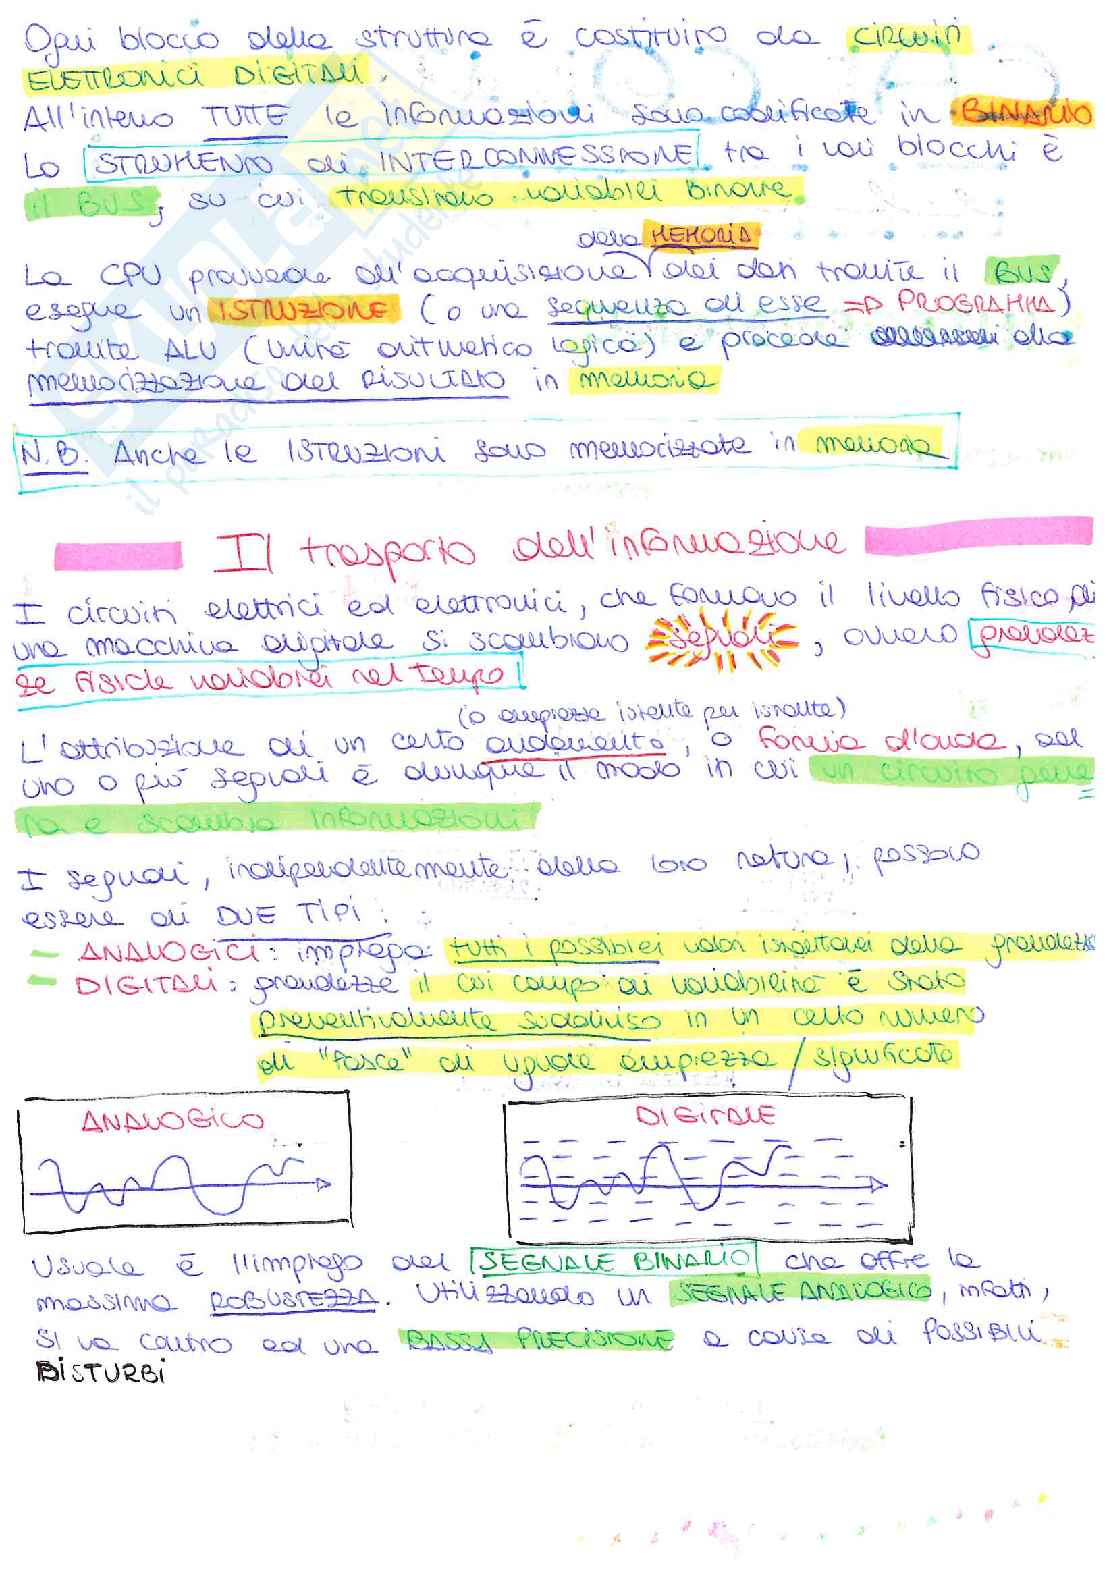 Ogni blocco della struttura è costituito da CIRCUITI
ELETTRONICI DIGITALI.
All'interno TUTTE le informazioni sono codificate in BINARIO
Lo STRUMENTO di INTERCONNESSIONE tra i vari blocchi è
il BUS, su cui transitano variabili binarie
della MEMORIA
La CPU provvede all'acquisizione dei dati tramite il BUS,
esegue un ISTRUZIONE (o una sequenza di esse => PROGRAMMA)
tramite ALU (unità aritmetico logica) e procede alla
memorizzazione del RISULTATO in memoria
N.B. Anche le ISTRUZIONI sono memorizzate in memoria
Il trasporto dell'informazione
I circuiti elettrici ed elettronici, che formano il livello fisico di
una macchina digitale si scambiano segnali, ovvero grandez
ze fisiche variabili nel tempo
(o ampiezza istante per istante)
L'attribuzione di un certo andamento, o forma d'onda, ad
uno o più segnali è dunque il modo in cui un circuito gene
ra e scambia informazioni
I segnali, indipendentemente dalla loro natura, possono
essere di DUE TIPI:
- ANALOGICI: impiega tutti i possibili valori istantanei della grandezza
- DIGITALI: grandezze il cui campo di variabilità è stato
preventivamente suddiviso in un certo numero
di "fasce" di uguale ampiezza / significato
ANALOGICO
DIGITALE
Usuale è l'impiego del SEGNALE BINARIO che offre la
massima ROBUSTEZZA. Utilizzando un SEGNALE ANALOGICO, infatti,
si va contro ad una BASSA PRECISIONE a causa di POSSIBILI
DISTURBI